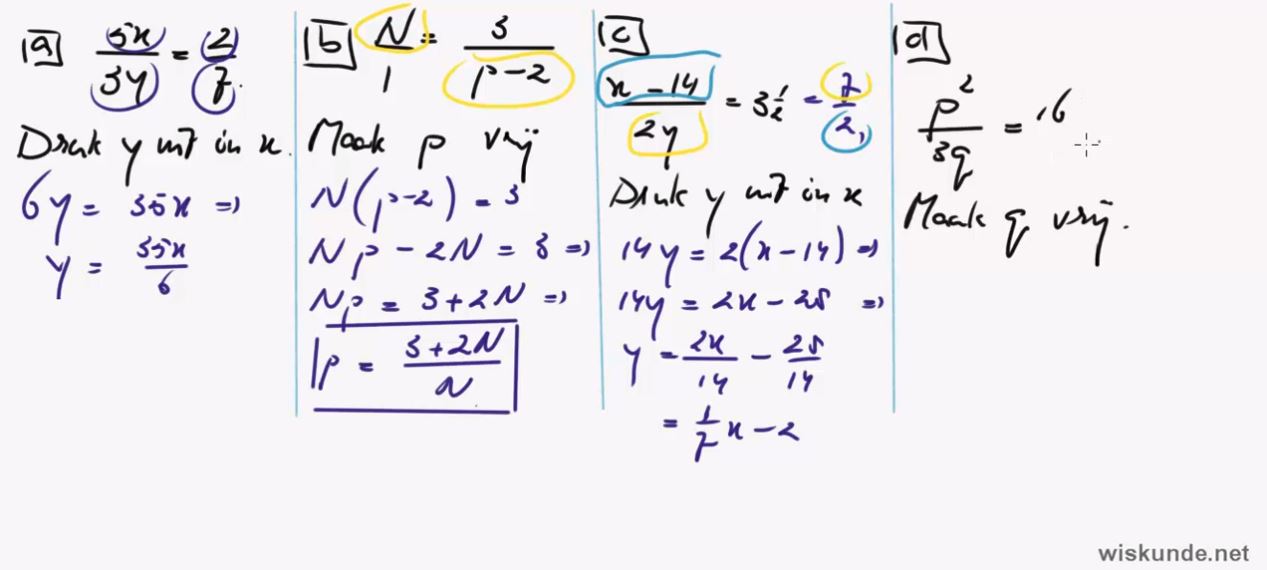 a 5x/3y = 2/7
Druk y uit in x.
6y = 35x =>
y = 35x/6
b N/1 = 3/(p-2)
Maak p vrij
N(p-2) = 3
Np - 2N = 3 =>
Np = 3 + 2N =>
p = (3+2N)/N
c (x-14)/2y = 3 1/2 = 7/2
Druk y uit in x
14y = 2(x-14) =>
14y = 2x - 28 =>
y = 2x/14 - 28/14
= 1/7 x - 2
d p²/3q = 16
Maak q vrij.
wiskunde.net